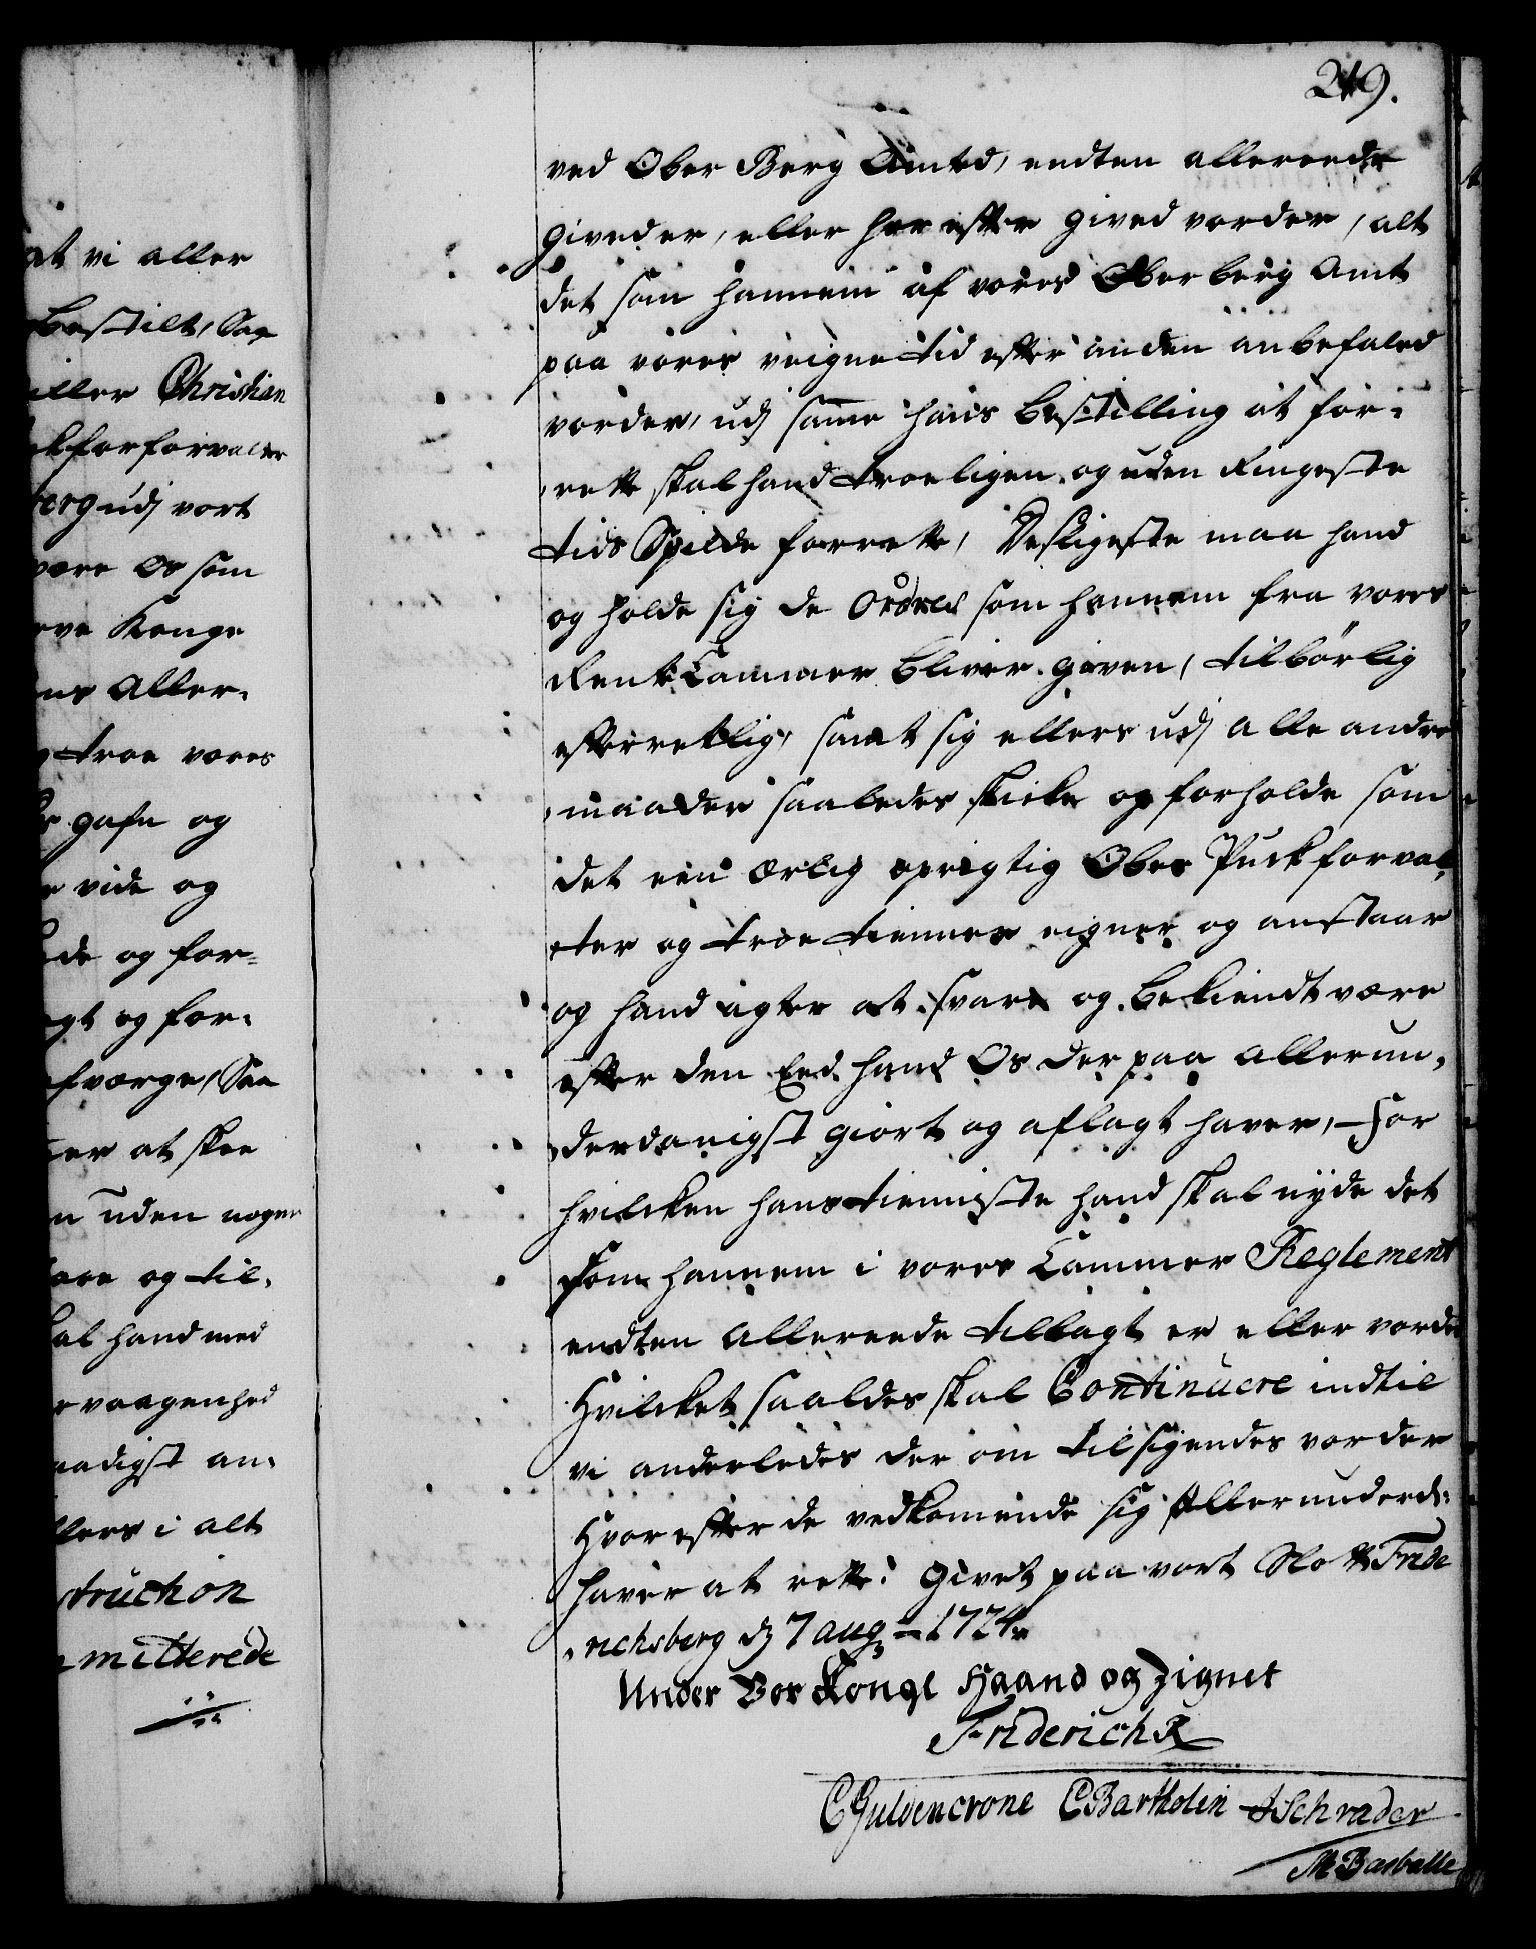 219.
ved Ober Berg Amted, endten allereede
gived er, eller her efter gived vorder, alt
det som hannem af vores Ober berg Amt
paa vores veigne tid efter anden anbefaled
vorder, udj samme hans bestilling at for-
rette skal hand troeligen og uden ringeste
tids Spilde forrette, Desligeste maa hand
og holde sig de Ordres som hannem fra vores
Rente Cammer bliver given, tilbörlig
efterrettlig, samt sig ellers udj alle andre
maader saaledes skicke og forholde som
det een ærlig oprigtig Ober Puckforval-
ter og troe tienner eigner og anstaar
og hand agter at svare og bekiendt være
efter den Eed hand Os derpaa allerun-
derdanigst giort og aflagt haver, For
hvilcken hans tienniste hand skal nyde det
som hannem i vores Cammer Reglement
endten allereede tillagt er eller vorder
Hvilcket saaldes skal Continuere indtil
vi anderledes der om tilsigendes vorder
Hvor efter de vedkommende sig Allerunderd:
haver at rette. Givet paa vort Slott Fride
richsberg d 7 aug 1724
Under Vor Kongl Haand og Zignet
Friderich R
CGuldencrone CBartholin JSchrader
MBarballe
at vi aller
bestilt, Saa
eller Christian
ckforforvalter
berg udj vort
være Os som
rve Konge
ens Aller-
g troe vores
gafn og
vide og
de og for-
gt og for-
fværge, Saa
er at skee
n uden nogen
are og til-
kal hand med
vaagenhed
aadigst an-
llers i alt
struction
mitterede